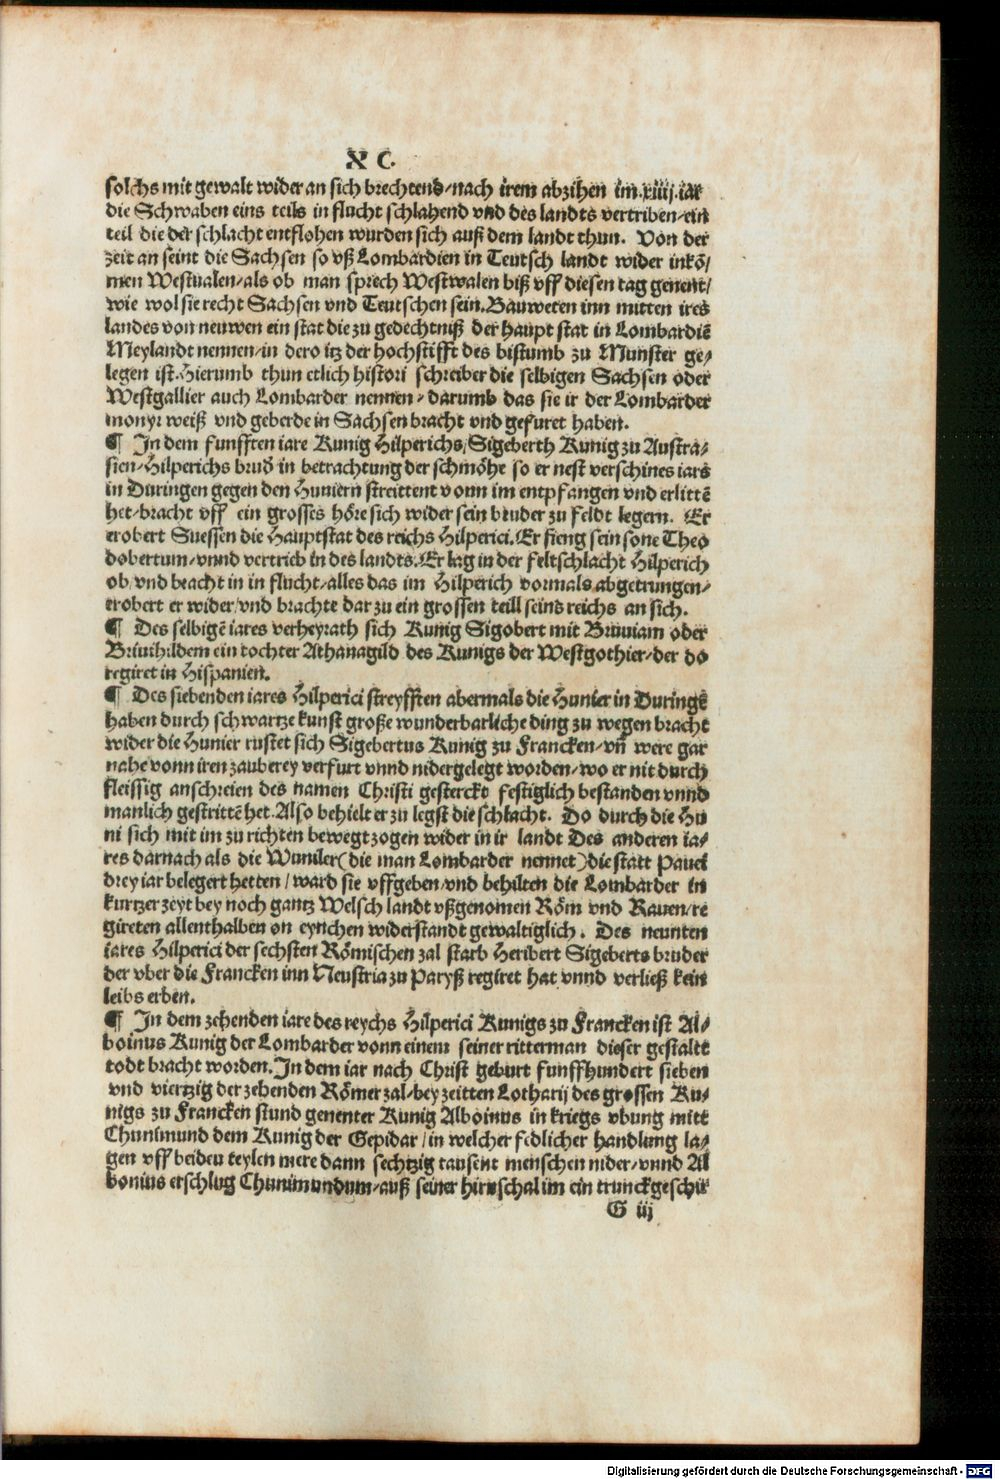 X C.
solchs mit gewalt wider an sich brechtend/nach irem abzihen im.xiiij.iar
die Schwaben eins teils in flucht schlahend vnd des landts vertriben/ein
teil die der schlacht entflohen wurden sich auß dem landt thun. Von der
zeit an seint die Sachsen so vß Lombardien in Teutsch landt wider inkō/
men Westualen/als ob man sprech Westwalen biß vff diesen tag genent/
wie wol sie recht Sachsen vnd Teutschen sein.Bauweten inn mitten ires
landes von neuwen ein stat die zu gedechtniß der haupt stat in Lombardiē
Meylandt nennen/in dero itz der hochstifft des bistumb zu Munster ge/
legen ist.Hierumb thun etlich histori schreiber die selbigen Sachsen oder
Westgallier auch Lombarder nennen/darumb das sie ir der Lombarder
monyr weiß vnd geberde in Sachsen bracht vnd gefuret haben.
¶ In dem funfften iare Kunig Hilperichs/Sigeberth Kunig zu Austra/
sien/Hilperichs brud̄ in betrachtung der schmöhe so er nest verschines iars
in Duringen gegen den Huniern streittent vonn im entpfangen vnd erlittē
het/bracht vff ein grosses höre sich wider sein bruder zu feldt legern. Er
erobert Suessen die Hauptstat des reichs Hilperici.Er fieng sein sone Theo
dobertum/vnnd vertrieb in des landts.Er lag in der feltschlacht Hilperich
ob/vnd bracht in in flucht/alles das im Hilperich vormals abgetrungen/
erobert er wider/vnd brachte dar zu ein grossen teill seins reichs an sich.
¶ Des selbigē iares verheyrath sich Kunig Sigobert mit Bruuiam oder
Briuihildem ein tochter Athanagild des Kunigs der Westgothier/der do
regiret in Hispanien.
¶ Des siebenden iares Hilperici streyfften abermals die Hunier in Duringē
haben durch schwartze kunst große wunderbarliche ding zu wegen bracht
wider die Hunier rustet sich Sigebertus Kunig zu Francken/vn̄ were gar
nahe vonn iren zauberey verfurt vnnd nidergelegt worden/wo er nit durch
fleissig anschreien des namen Christi gesterckt festiglich bestanden vnnd
manlich gestrittē het.Also behielt er zu legst die schlacht. Do durch die Hu
ni sich mit im zu richten bewegt zogen wider in ir landt Des anderen ia/
res darnach als die Wuniler(die man Lombarder nennet)die statt Pauei
drey iar belegert hetten/ward sie vffgeben/vnd behilten die Lombarder in
kurtzer zeyt bey noch gantz Welsch landt vßgenomen Röm vnd Rauen/re
gireten allenthalben on eynchen widerstandt gewaltiglich. Des neunten
iares Hilperici der sechsten Römischen zal starb Heribert Sigeberts bruder
der vber die Francken inn Neustria zu Paryß regiret hat vnnd verließ kein
leibs erben.
¶ In dem zehenden iare des reychs Hilperici Kunigs zu Francken ist Al/
boinus Kunig der Lombarder vonn einem seiner ritterman dieser gestaltt
todt bracht worden.In dem iar nach Christ geburt funffhundert sieben
vnd viertzig der zehenden Römer zal/bey zeitten Lotharij des grossen Ku/
nigs zu Francken stund genenter Kunig Alboinus in kriegs vbung mitt
Chunimund dem Kunig der Gepidar/in welcher fedlicher handlung la/
gen vff beiden teylen mere dann sechtzig tausent menschen nider/vnnd Al
bonius erschlug Chunimundum/auß seiner hirnschal im ein trunckgeschir
G iij
Digitalisierung gefördert durch die Deutsche Forschungsgemeinschaft - DFG